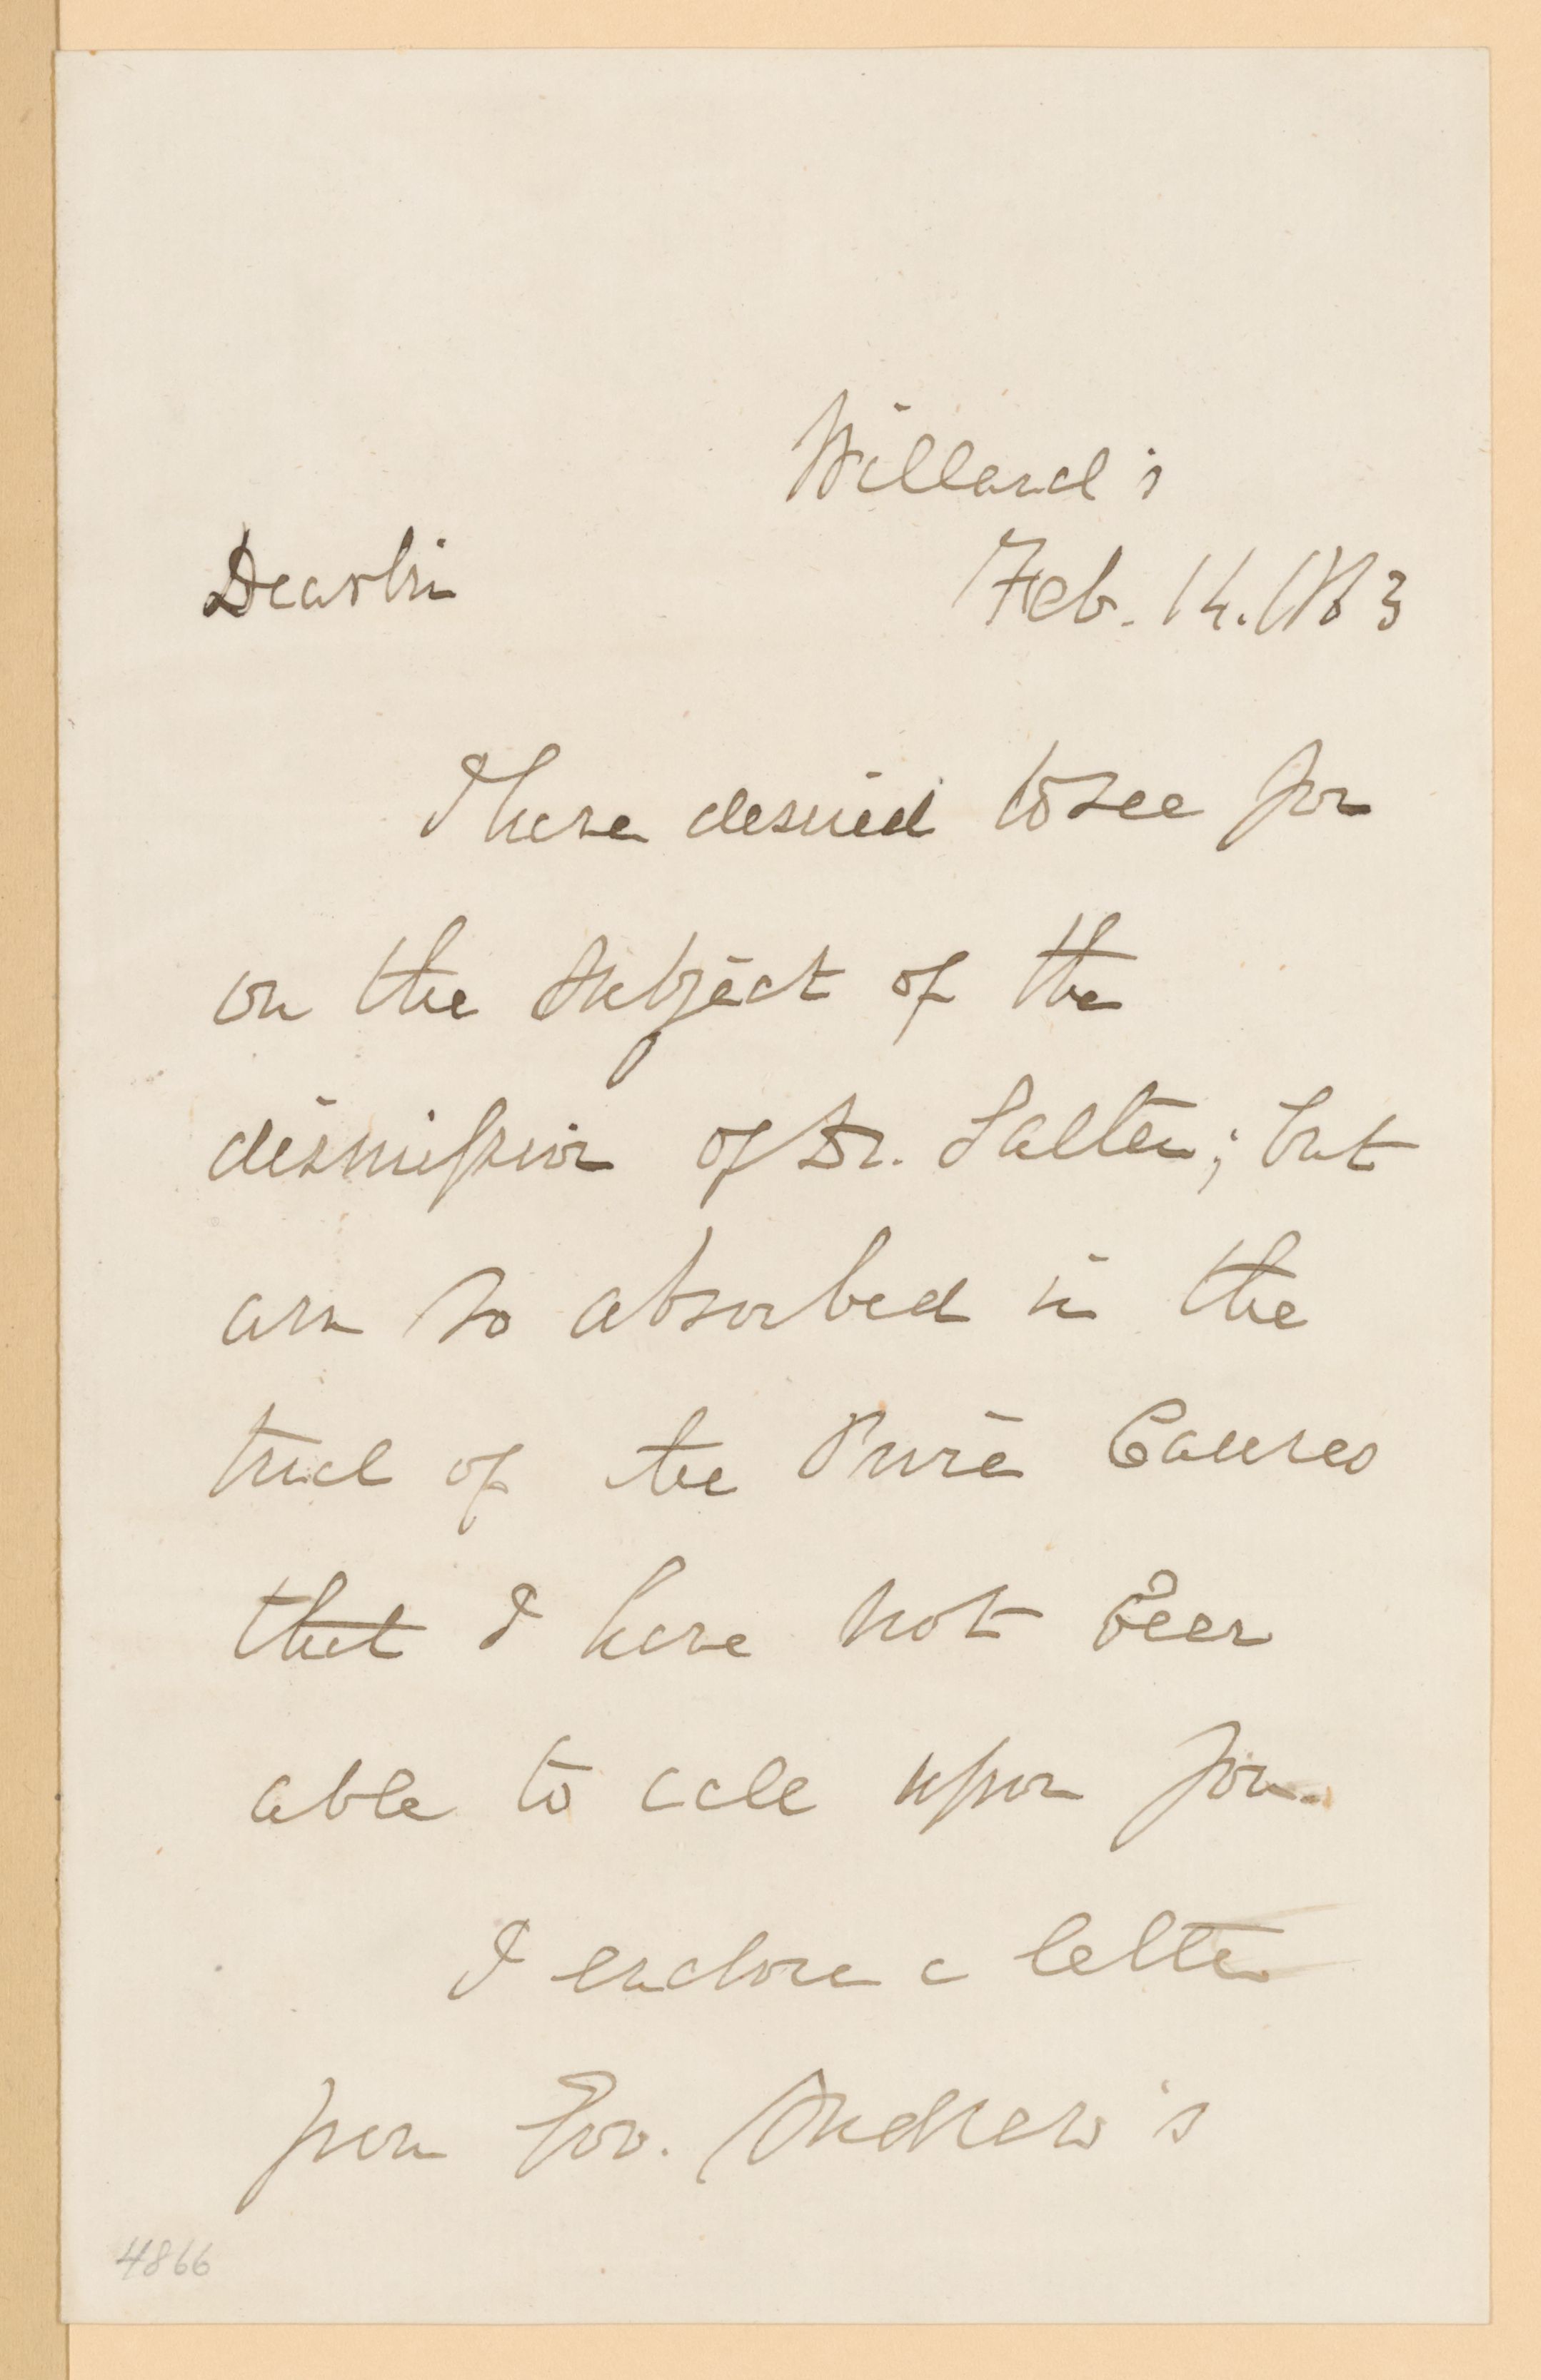 Willard's
Dear Sir
Feb. 14. 1863
I have desired to see you
on the subject of the
dismission of Dr. Salter; but
am so absorbed in the
trial of the Prize Causes
that I have not been
able to call upon you.
I enclose a letter
from Gov. Andrew's
4866